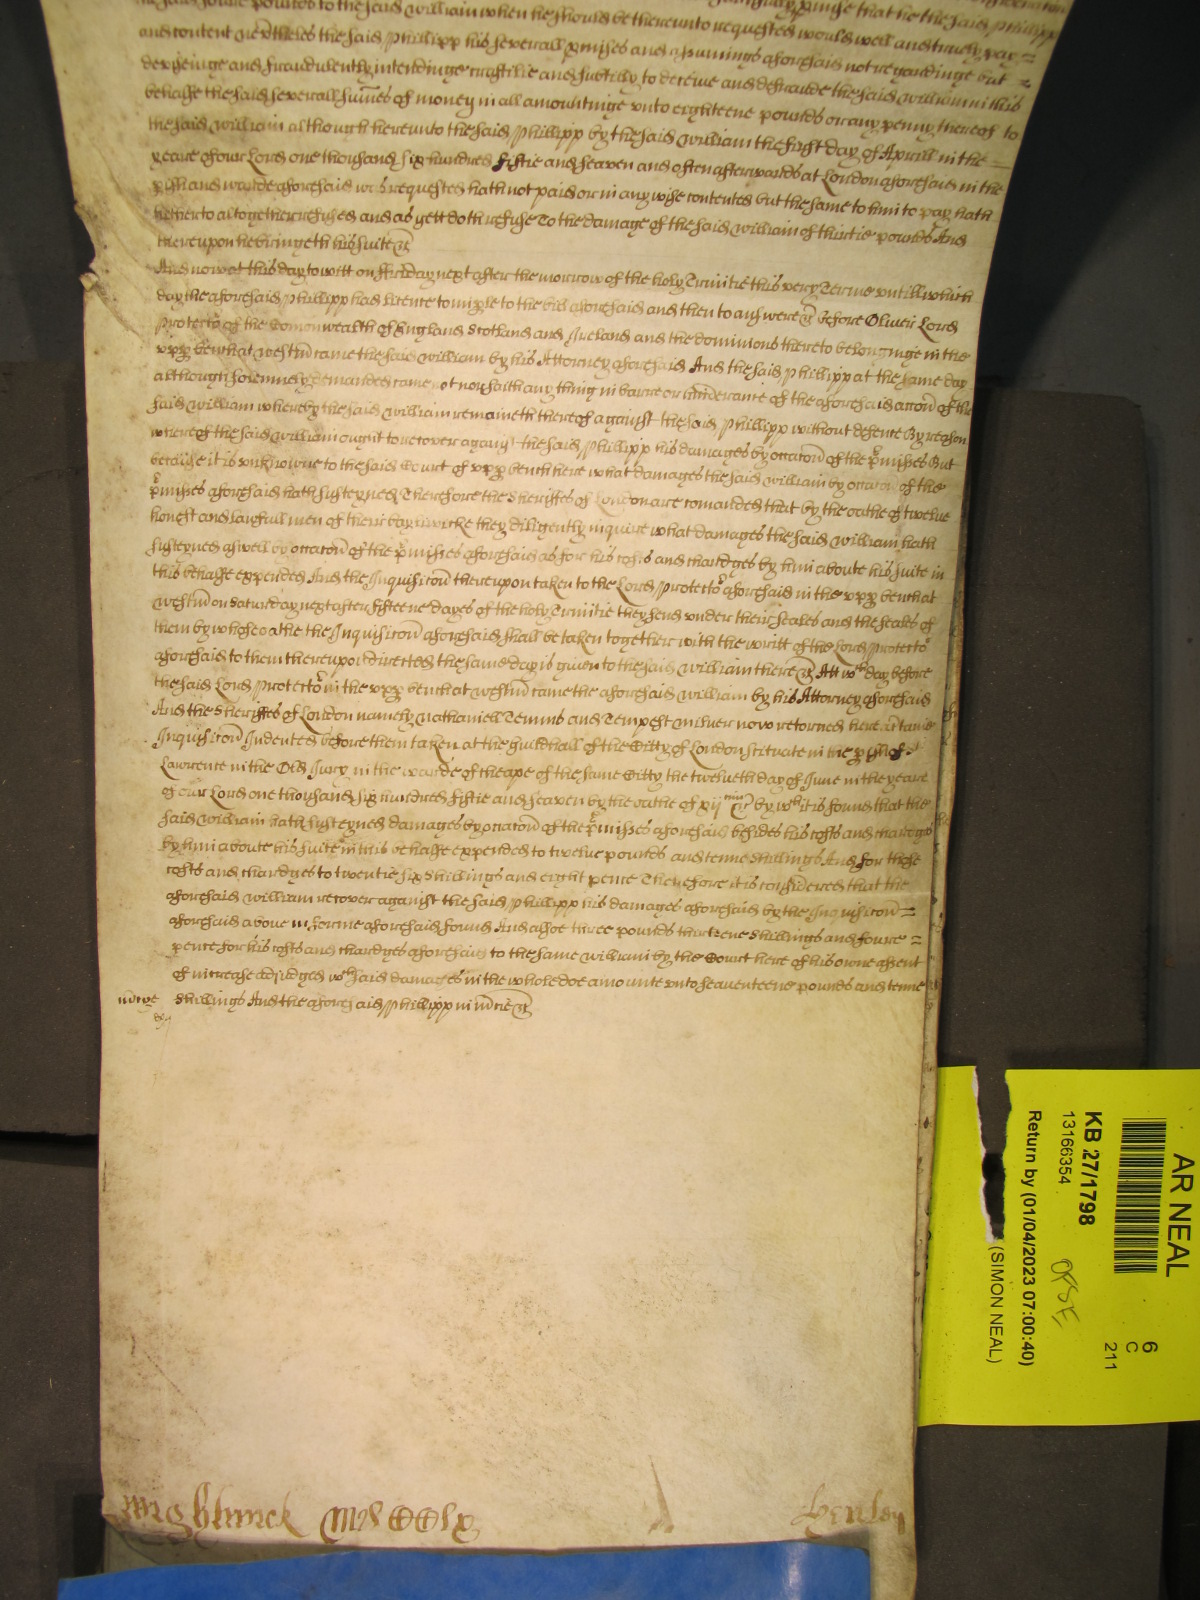 the said foure pounds to the said William when he should be thereunto requested would well and truely pay
and content neverthelesse the said Phillipp his severall p'mises and assumings aforesaid not regardinge but
devyseinge and fraudulently intendinge craftilie and subtilly to deceive and defraude the said William in this
behalfe the said severall sum̃es of money in all amountinge unto eighteene pounds or any penny thereof to
the said William although thereunto the said Phillipp by the said William the first day of Aprill in the
yeare of our Lord one thousand six hundred fiftie and seaven and often afterwards at London aforesaid in the
p'ish and warde aforesaid was requested hath not paid or in any wise contented but the same to him to pay hath
hetherto altogether refused and as yett doth refuse To the damage of the said William of thirtie pounds And
thereupon he bringeth his suite &c
And now at this day to witt on Friday next after the morrow of the holy Trinitie this very Terme untill which
day the aforesaid Phillipp had licence to imple to the bill aforesaid and then to answere &c before Oliver Lord
Protecto' of the Comonwealth of England Scotland and Ireland and the dominions thereto belonginge in the
upp' bench at Westm̃ came the said William by his Attorney aforesaid And the said Phillipp at the same day
although solemnely demanded came not nor saith any thing in barre or hinderance of the aforesaid acc̃on of the
said William whereby the said William remaineth thereof against the said Phillipp without defence By reason
whereof the said William ought to recover against the said Phillipp his damages by occac̃on of the p'misses But
because it is unknowne to the said Court of upp' bench here what damages the said William by occac̃on of the
p'misses aforesaid hath susteyned Therefore the Sheriffes of London are comanded that by the oathe of twelve
honest and lawfull men of their bayliwicke they diligently inquire what damages the said William hath
susteyned aswell by occac̃on of the p'misses aforesaid as for his costs and chardges by him aboute his suite in
this behalfe expended And the Inquisic̃on thereupon taken to the Lord Protecto' aforesaid in the upp' bench at
Westm̃ on Saturday next after fifteene dayes of the holy Trinitie they send under their seales and the seales of
them by whose oathe the Inquisic̃on aforesaid shall be taken together with the writt of the Lord Protecto'
aforesaid to them thereupon directed the same day is given to the said William there &c Att wch day before
the said Lord Protecto' in the upp' bench at Westm̃ came the aforesaid William by his Attorney aforesaid
And the Sheriffes of London namely Nathaniell Temms and Tempest Milner now returned here a certaine
Inquisic̃on Indented before them taken at the Guildhall of the Citty of London scituate in the p'ish of
Lawrence in the Old Jury in the warde of Cheape of the same Citty the twelveth day of June in the yeare
of our Lord one thousand six hundred fiftie and seaven by the oathe of xij &c by wch it is found that the
said William hath susteyned damages by occac̃on of the p'misses aforesaid besides his costs and chardges
by him aboute his suite in this behalfe expended to twelve pounds and tenne shillings And for those
costs and chardges to twentie six shillings and eight pence Therefore it is considered that the
aforesaid William recover against the said Phillipp his damages aforesaid by the Inquisic̃on
aforesaid above in forme aforesaid found And alsoe three pounds thirteene shillings and foure
pence for his costs and chardges aforesaid to the same William by the Court here of his owne assent
of increase adjudged wch said damages in the whole doe amounte unto seaventeene pounds and tenne
shillings And the aforesaid Phillipp in m̃cie &c
m̃cye
Henley
AR NEAL
6
C
211
KB 27/1798
13166354
Return by (01/04/2023 07:00:40)
(SIMON NEAL)